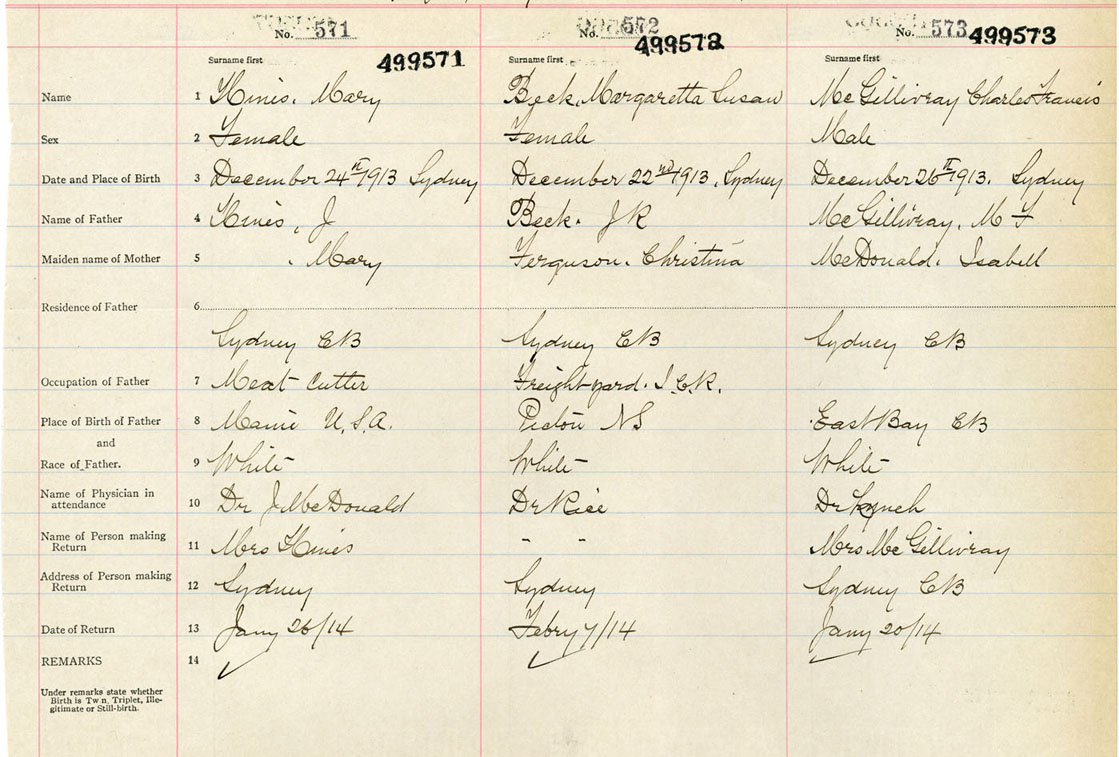 No. 571 No. 572 No. 573
499571 499572 499573
Surname first Surname first Surname first
Name 1 Hines. Mary Beck. Margaretta Susan McGillivray Charles Francis
Sex 2 Female Female Male
Date and Place of Birth 3 December 24th 1913 Sydney December 22nd 1913. Sydney December 26th 1913. Sydney
Name of Father 4 Hines, J Beck. J R McGillivray. M F
Maiden name of Mother 5 . Mary Ferguson. Christina McDonald. Isabell
Residence of Father 6
Sydney CB Sydney CB Sydney CB
Occupation of Father 7 Meat Cutter Freight yard. I.C.R.
Place of Birth of Father 8 Maine U.S.A. Pictou NS East Bay CB
and
Race of Father. 9 White White White
Name of Physician in
attendance 10 Dr J McDonald Dr Rice Dr Lynch
Name of Person making
Return 11 Mrs Hines " " Mrs McGillivray
Address of Person making
Return 12 Sydney Sydney Sydney CB
Date of Return 13 Jany 26/14 Febry 7/14 Jany 20/14
REMARKS 14
Under remarks state whether
Birth is Twin, Triplet, Ille-
gitimate or Still-birth.